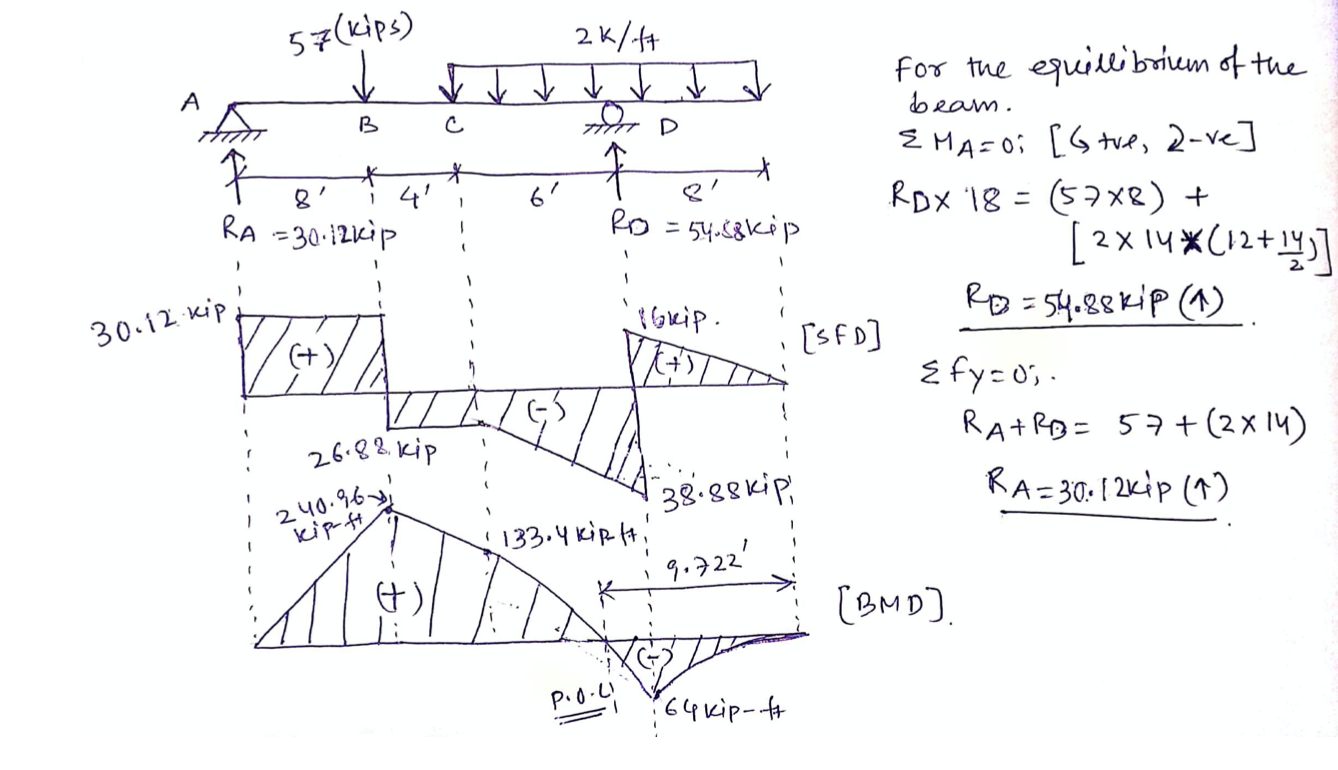 57(kips)
2K/ft
A
B
C
D
8'
4'
6'
8'
RA =30.12kip
RD =54.88kip
30.12 kip
(+)
16kip.
(+)
[SFD]
(-)
26.88 kip
38.88kip
240.96
kip-ft
133.4 kip ft
9.722'
(+)
[BMD].
(-)
64kip-ft
For the equillibrium of the
beam.
Σ MA=0; [↺ +ve, ↻ -ve]
RD× 18 = (57×8) +
[2×14×(12+14/2)]
RD = 54.88kip (↑)
Σ fy=0;.
RA+RD= 57+(2×14)
RA=30.12kip (↑)